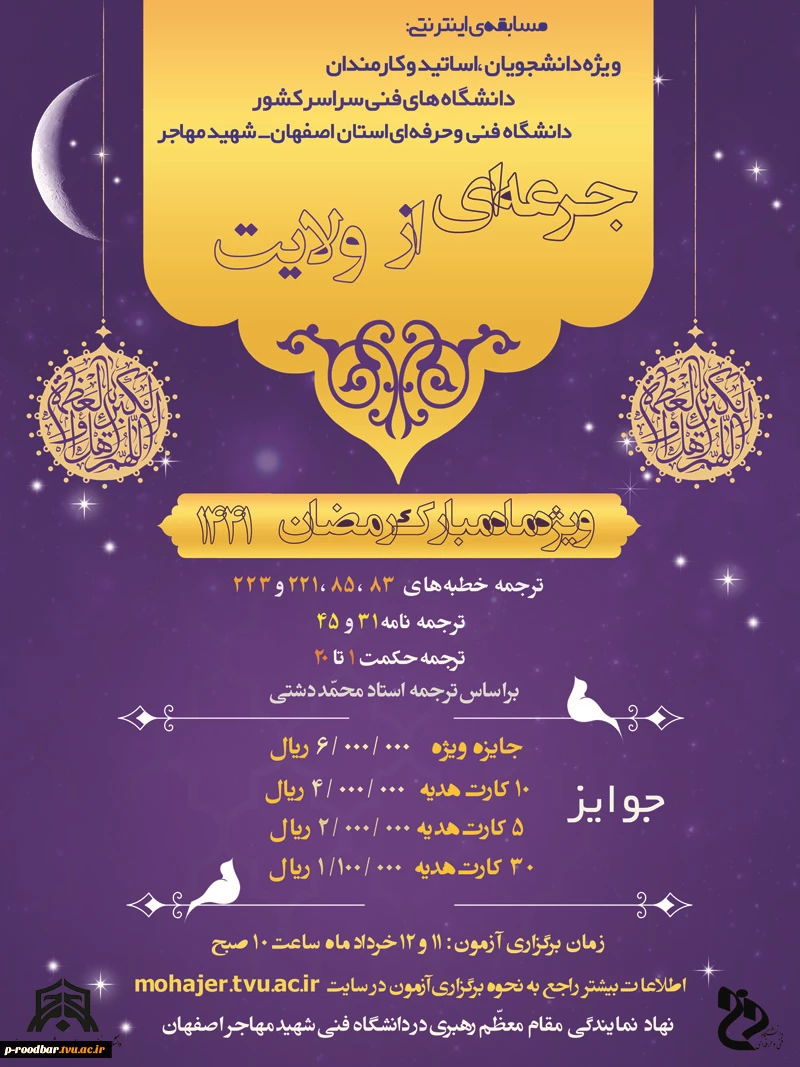 مسابقه‌ی اینترنتی:
ویژه دانشجویان ،اساتید و کارمندان
دانشگاه های فنی سراسر کشور
دانشگاه فنی و حرفه ای استان اصفهان_ شهید مهاجر
جرعه‌ای از ولایت
اللهم اهل الکبریاء و العظمة
اللهم اهل الکبریاء و العظمة
ویژه ماه مبارک رمضان ۱۴۴۱
ترجمه خطبه‌های ۸۳ ،۸۵ ،۲۲۱ و ۲۲۳
ترجمه نامه ۳۱ و ۴۵
ترجمه حکمت ۱ تا ۲۰
براساس ترجمه استاد محمّد دشتی
جوایز
جایزه ویژه ۶/۰۰۰/۰۰۰ ریال
۱۰ کارت هدیه ۴/۰۰۰/۰۰۰ ریال
۵ کارت هدیه ۲/۰۰۰/۰۰۰ ریال
۳۰ کارت هدیه ۱/۱۰۰/۰۰۰ ریال
زمان برگزاری آزمون : ۱۱ و ۱۲ خرداد ماه ساعت ۱۰ صبح
اطلاعات بیشتر راجع به نحوه برگزاری آزمون در سایت mohajer.tvu.ac.ir
نهاد نمایندگی مقام معظّم رهبری در دانشگاه فنی شهید مهاجر اصفهان
p-roodbar.tvu.ac.ir